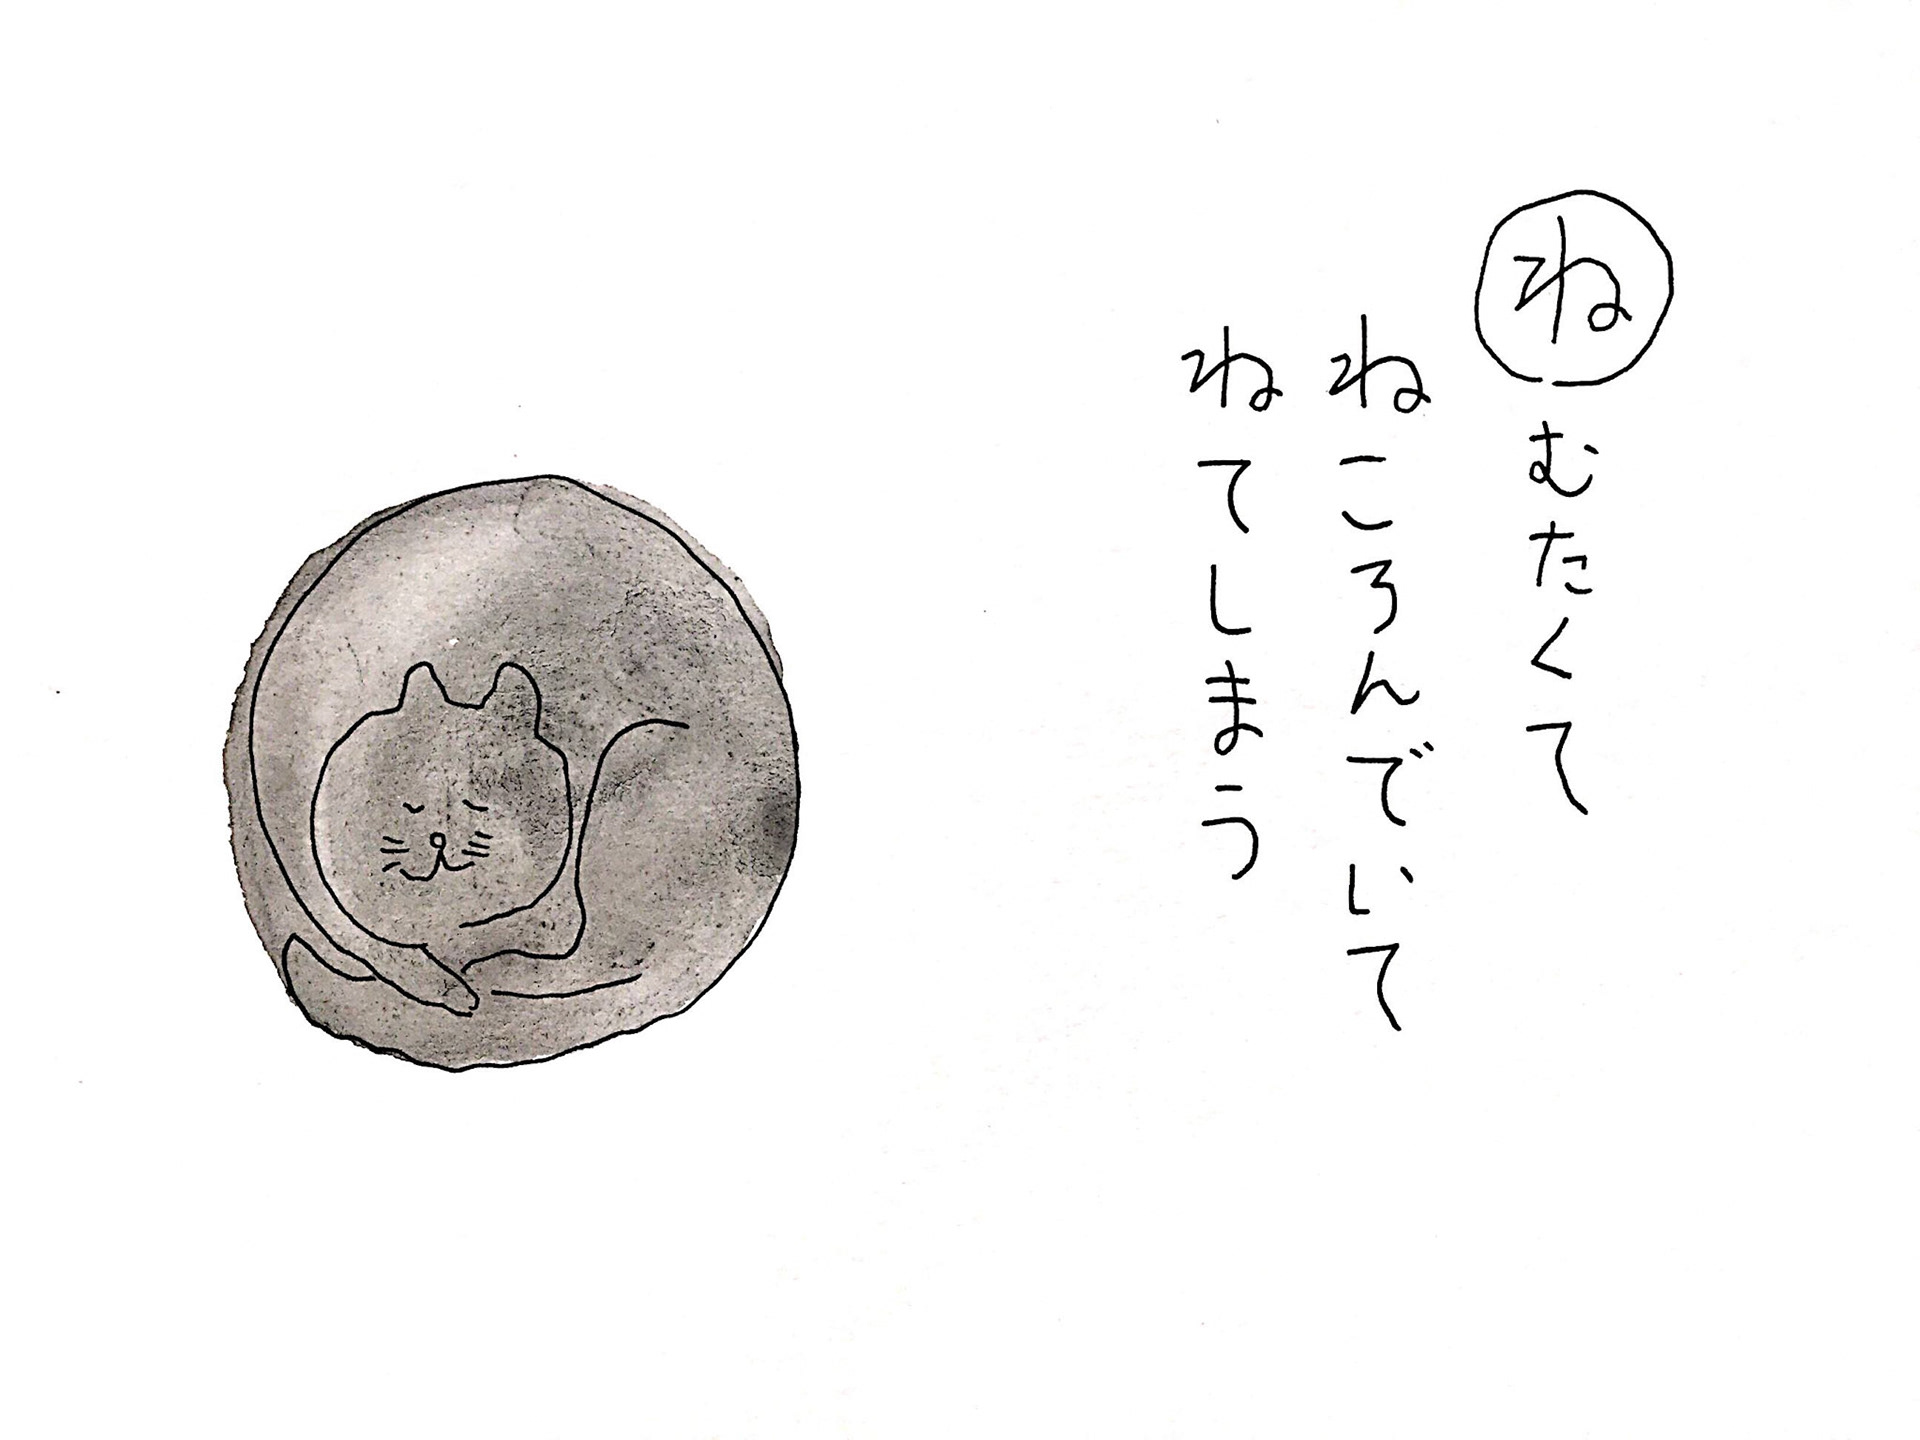 ねむたくて
ねころんでいて
ねてしまう